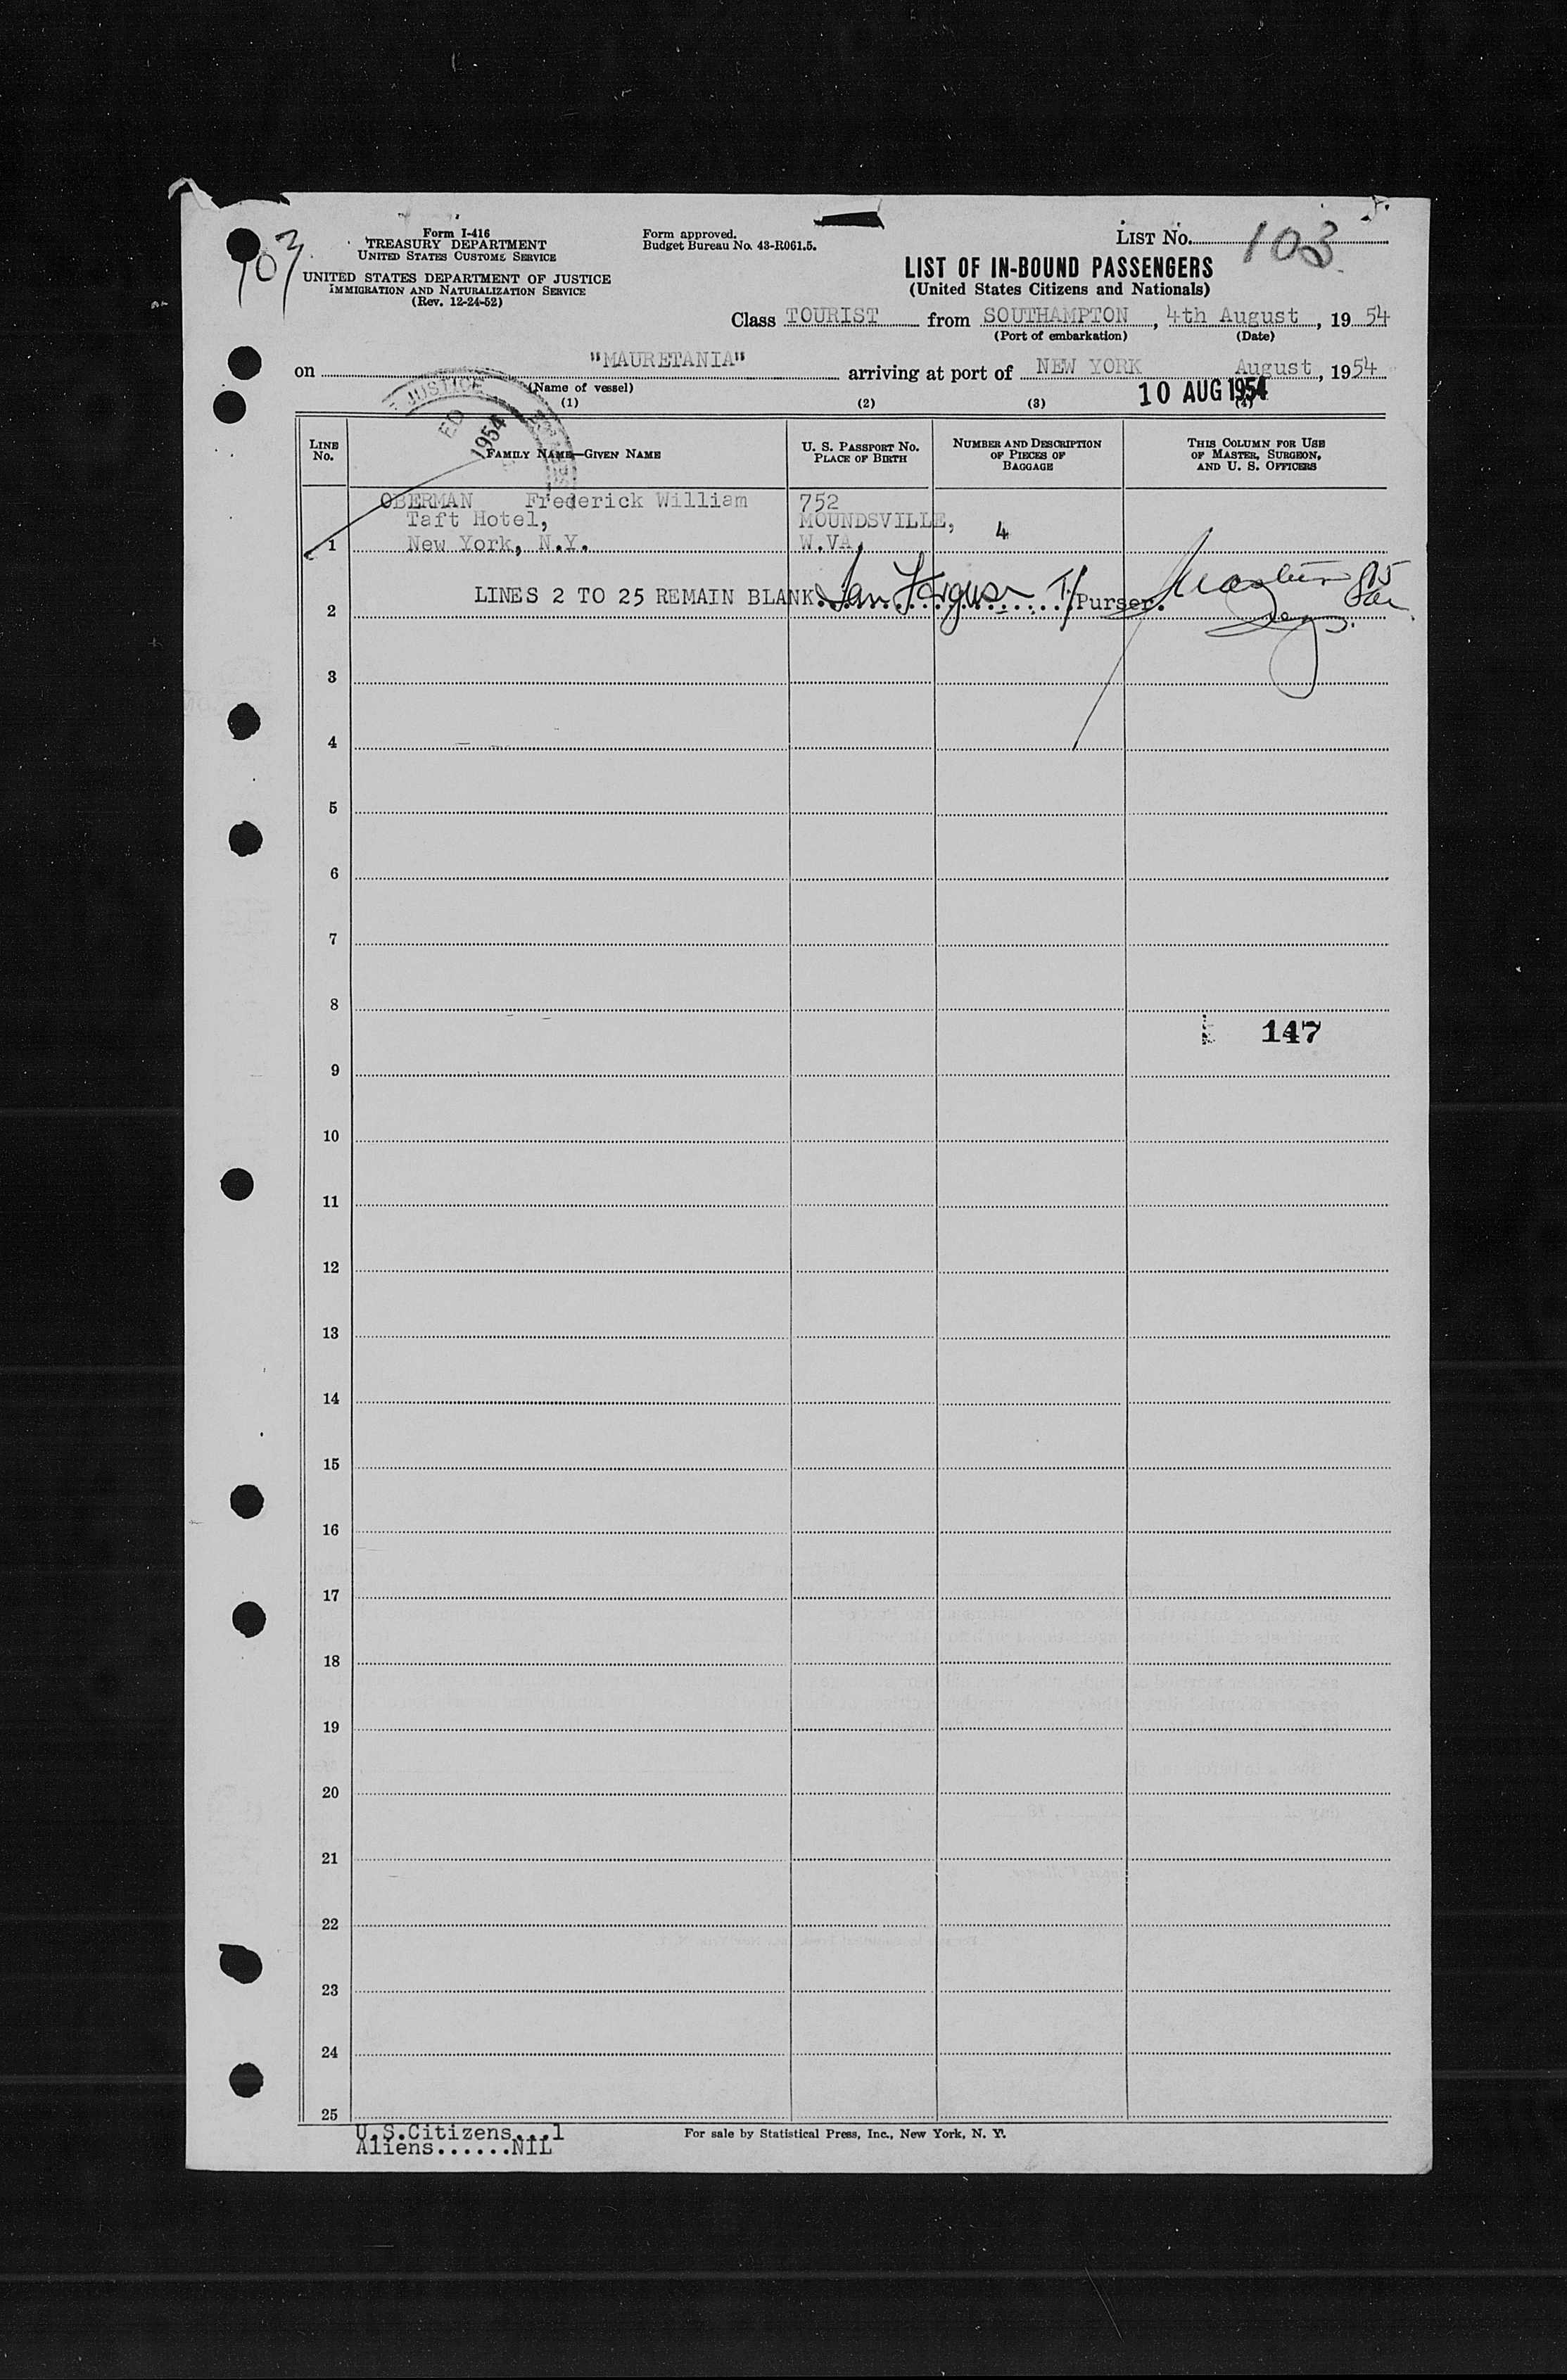 103
Form I-416
TREASURY DEPARTMENT
UNITED STATES CUSTOMS SERVICE
UNITED STATES DEPARTMENT OF JUSTICE
IMMIGRATION AND NATURALIZATION SERVICE
(Rev. 12-24-52)
Form approved.
Budget Bureau No. 43-R061.5.
LIST NO. 103
LIST OF IN-BOUND PASSENGERS
(United States Citizens and Nationals)
Class TOURIST from SOUTHAMPTON, 4th August, 1954
(Port of embarkation) (Date)
on "MAURETANIA" arriving at port of NEW YORK August, 1954
(Name of vessel)
10 AUG 1954
(1) (2) (3) (4)
JUSTICE
ED
1954
LINE NO.
FAMILY NAME—GIVEN NAME
U. S. PASSPORT NO.
PLACE OF BIRTH
NUMBER AND DESCRIPTION
OF PIECES OF
BAGGAGE
THIS COLUMN FOR USE
OF MASTER, SURGEON,
AND U. S. OFFICERS
OBERMAN Frederick William 752
Taft Hotel, MOUNDSVILLE,
1 New York, N.Y. W.VA, 4
2 LINES 2 TO 25 REMAIN BLANK. Purser.
3
4
5
6
7
8
147
9
10
11
12
13
14
15
16
17
18
19
20
21
22
23
24
25
U.S.Citizens...1
Aliens......NIL
For sale by Statistical Press, Inc., New York, N. Y.